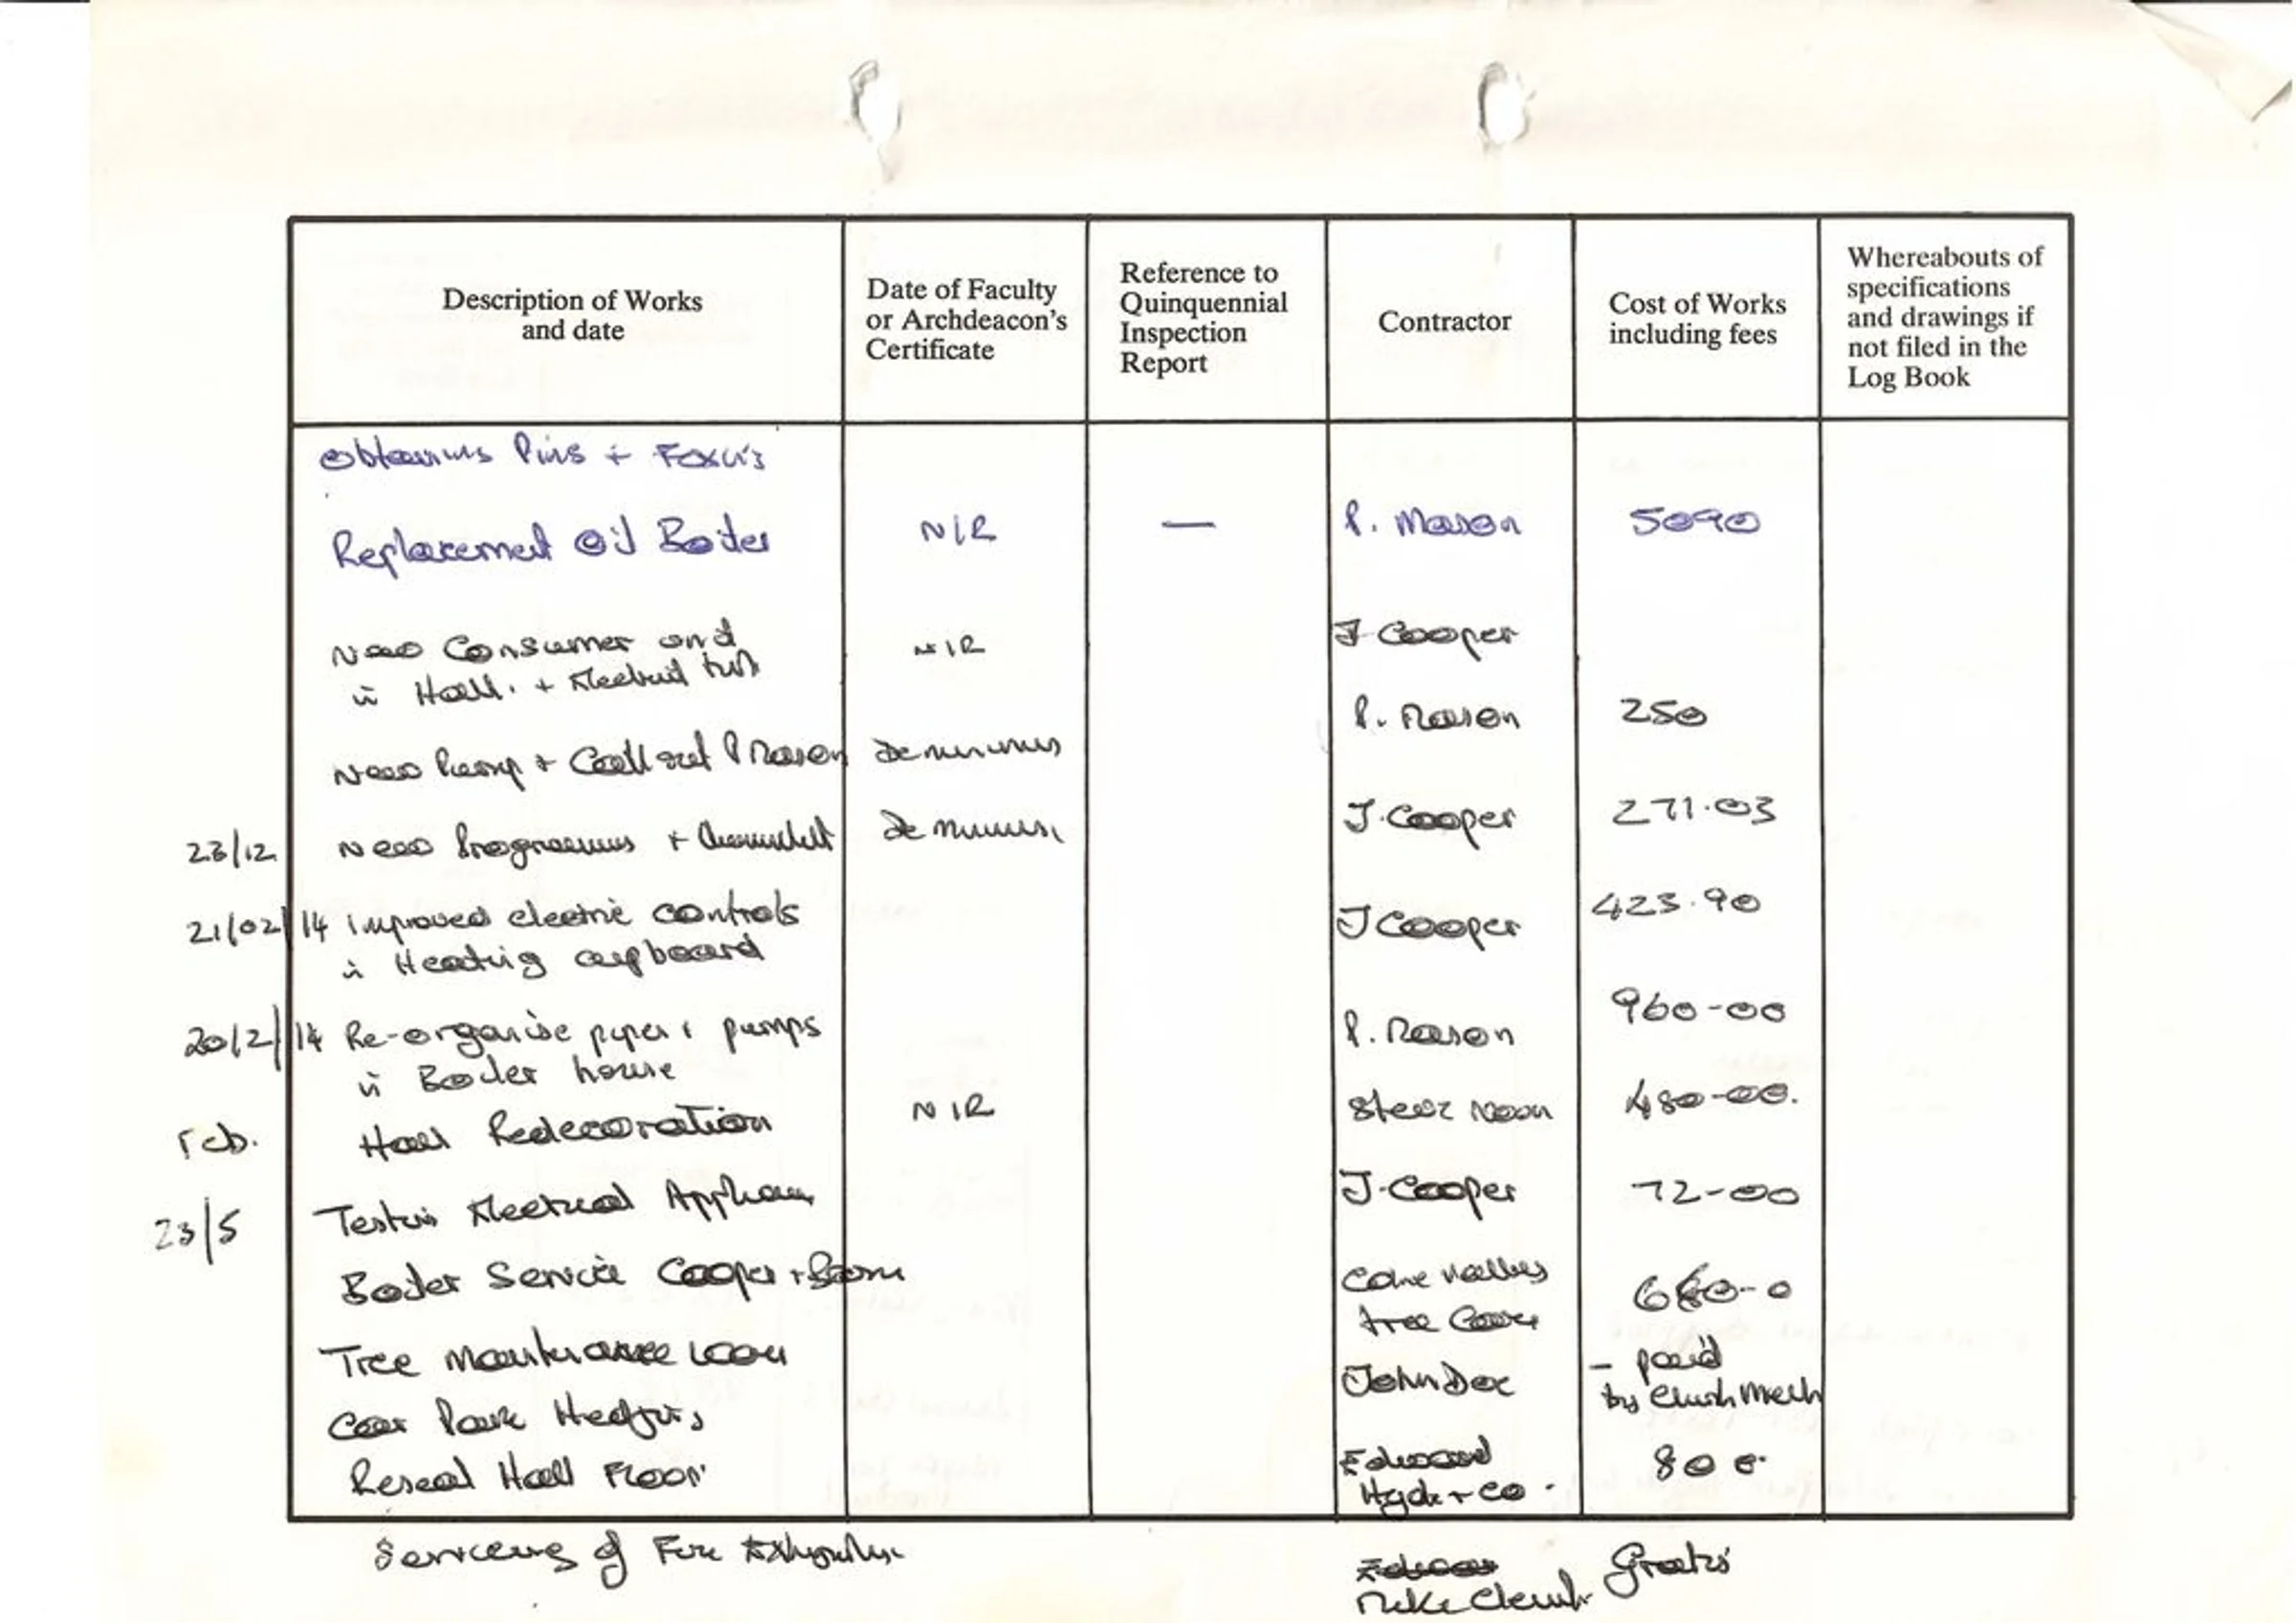 Description of Works
and date
Date of Faculty
or Archdeacon's
Certificate
Reference to
Quinquennial
Inspection
Report
Contractor
Cost of Works
including fees
Whereabouts of
specifications
and drawings if
not filed in the
Log Book
Replacement Oil Boiler N/R — P. Mason 5090
New Consumer and N/R J Cooper
in Hall. +
P. Mason 250
New Pump + Call out P Mason De minimus
J. Cooper 271.03
23/12 New + De minimus
21/02/14 improved electric controls J Cooper 423.90
in Heating cupboard
20/2/14 Re-organise pipes & pumps P. Mason 960-00
in Boiler house
Feb. Hall Redecoration N/R 480-00.
23/5 Testing Electrical J. Cooper 72-00
Boiler Service Cooper +
Colne Valley
tree Care
Tree Maintenance
John Doe – paid
by
Car Park Hedges
Reseal Hall Floor Edward 800
Hyde + Co.
Servicing of Fire Gratis
Mike